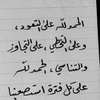 الحمد لله على التعود،
وعلى التخطي، على التجاوز
والتناسي، الحمد لله
على كل قوة استصعبنا